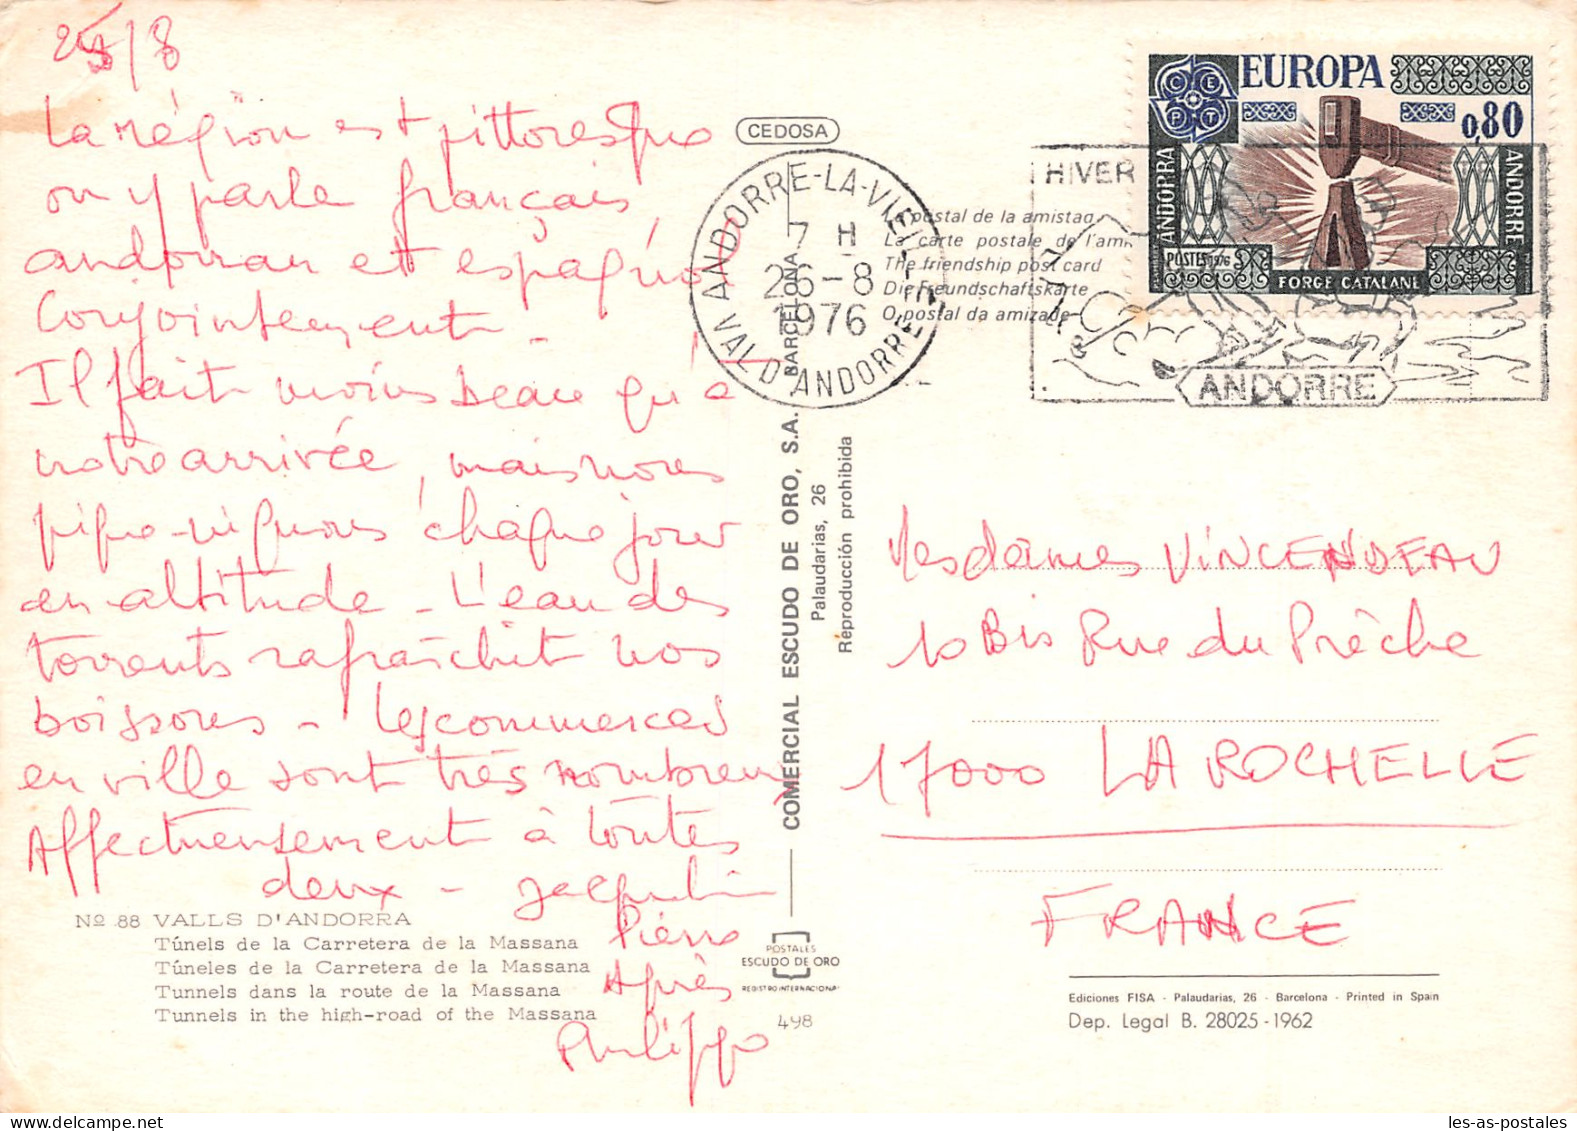 25/8
La région est pittoresque
on y parle français,
andorran et espagnol
Conjointement -
Il fait moins beau qu'à
notre arrivée, mais nous
pique-niquons chaque jour
en altitude - L'eau des
torrents rafraîchit nos
boissons - Les commerces
en ville sont très nombreux
Affectueusement à toutes
deux - Jacqueline
Pierre
Agnès
Philippe
Nº 88 VALLS D'ANDORRA
Túnels de la Carretera de la Massana
Túneles de la Carretera de la Massana
Tunnels dans la route de la Massana
Tunnels in the high-road of the Massana
CEDOSA
ANDORRE-LA-VIEILLE
7 H
26-8
1976
VAL D'ANDORRE
postal de la amistad
La carte postale de l'am
The friendship post card
Die Freundschaftskarte
O postal da amizade
COMERCIAL ESCUDO DE ORO, S.A. BARCELONA
Palaudarias, 26
Reproducción prohibida
POSTALES
ESCUDO DE ORO
REGISTRO INTERNACIONAL
498
HIVER
ANDORRE
CEPT
EUROPA
0,80
ANDORRA
ANDORRE
POSTES 1976
FORGE CATALANE
Mesdames VINCENDEAU
10 Bis Rue du Prêche
17000 LA ROCHELLE
FRANCE
Ediciones FISA - Palaudarias, 26 - Barcelona - Printed in Spain
Dep. Legal B. 28025-1962
les-as-postales